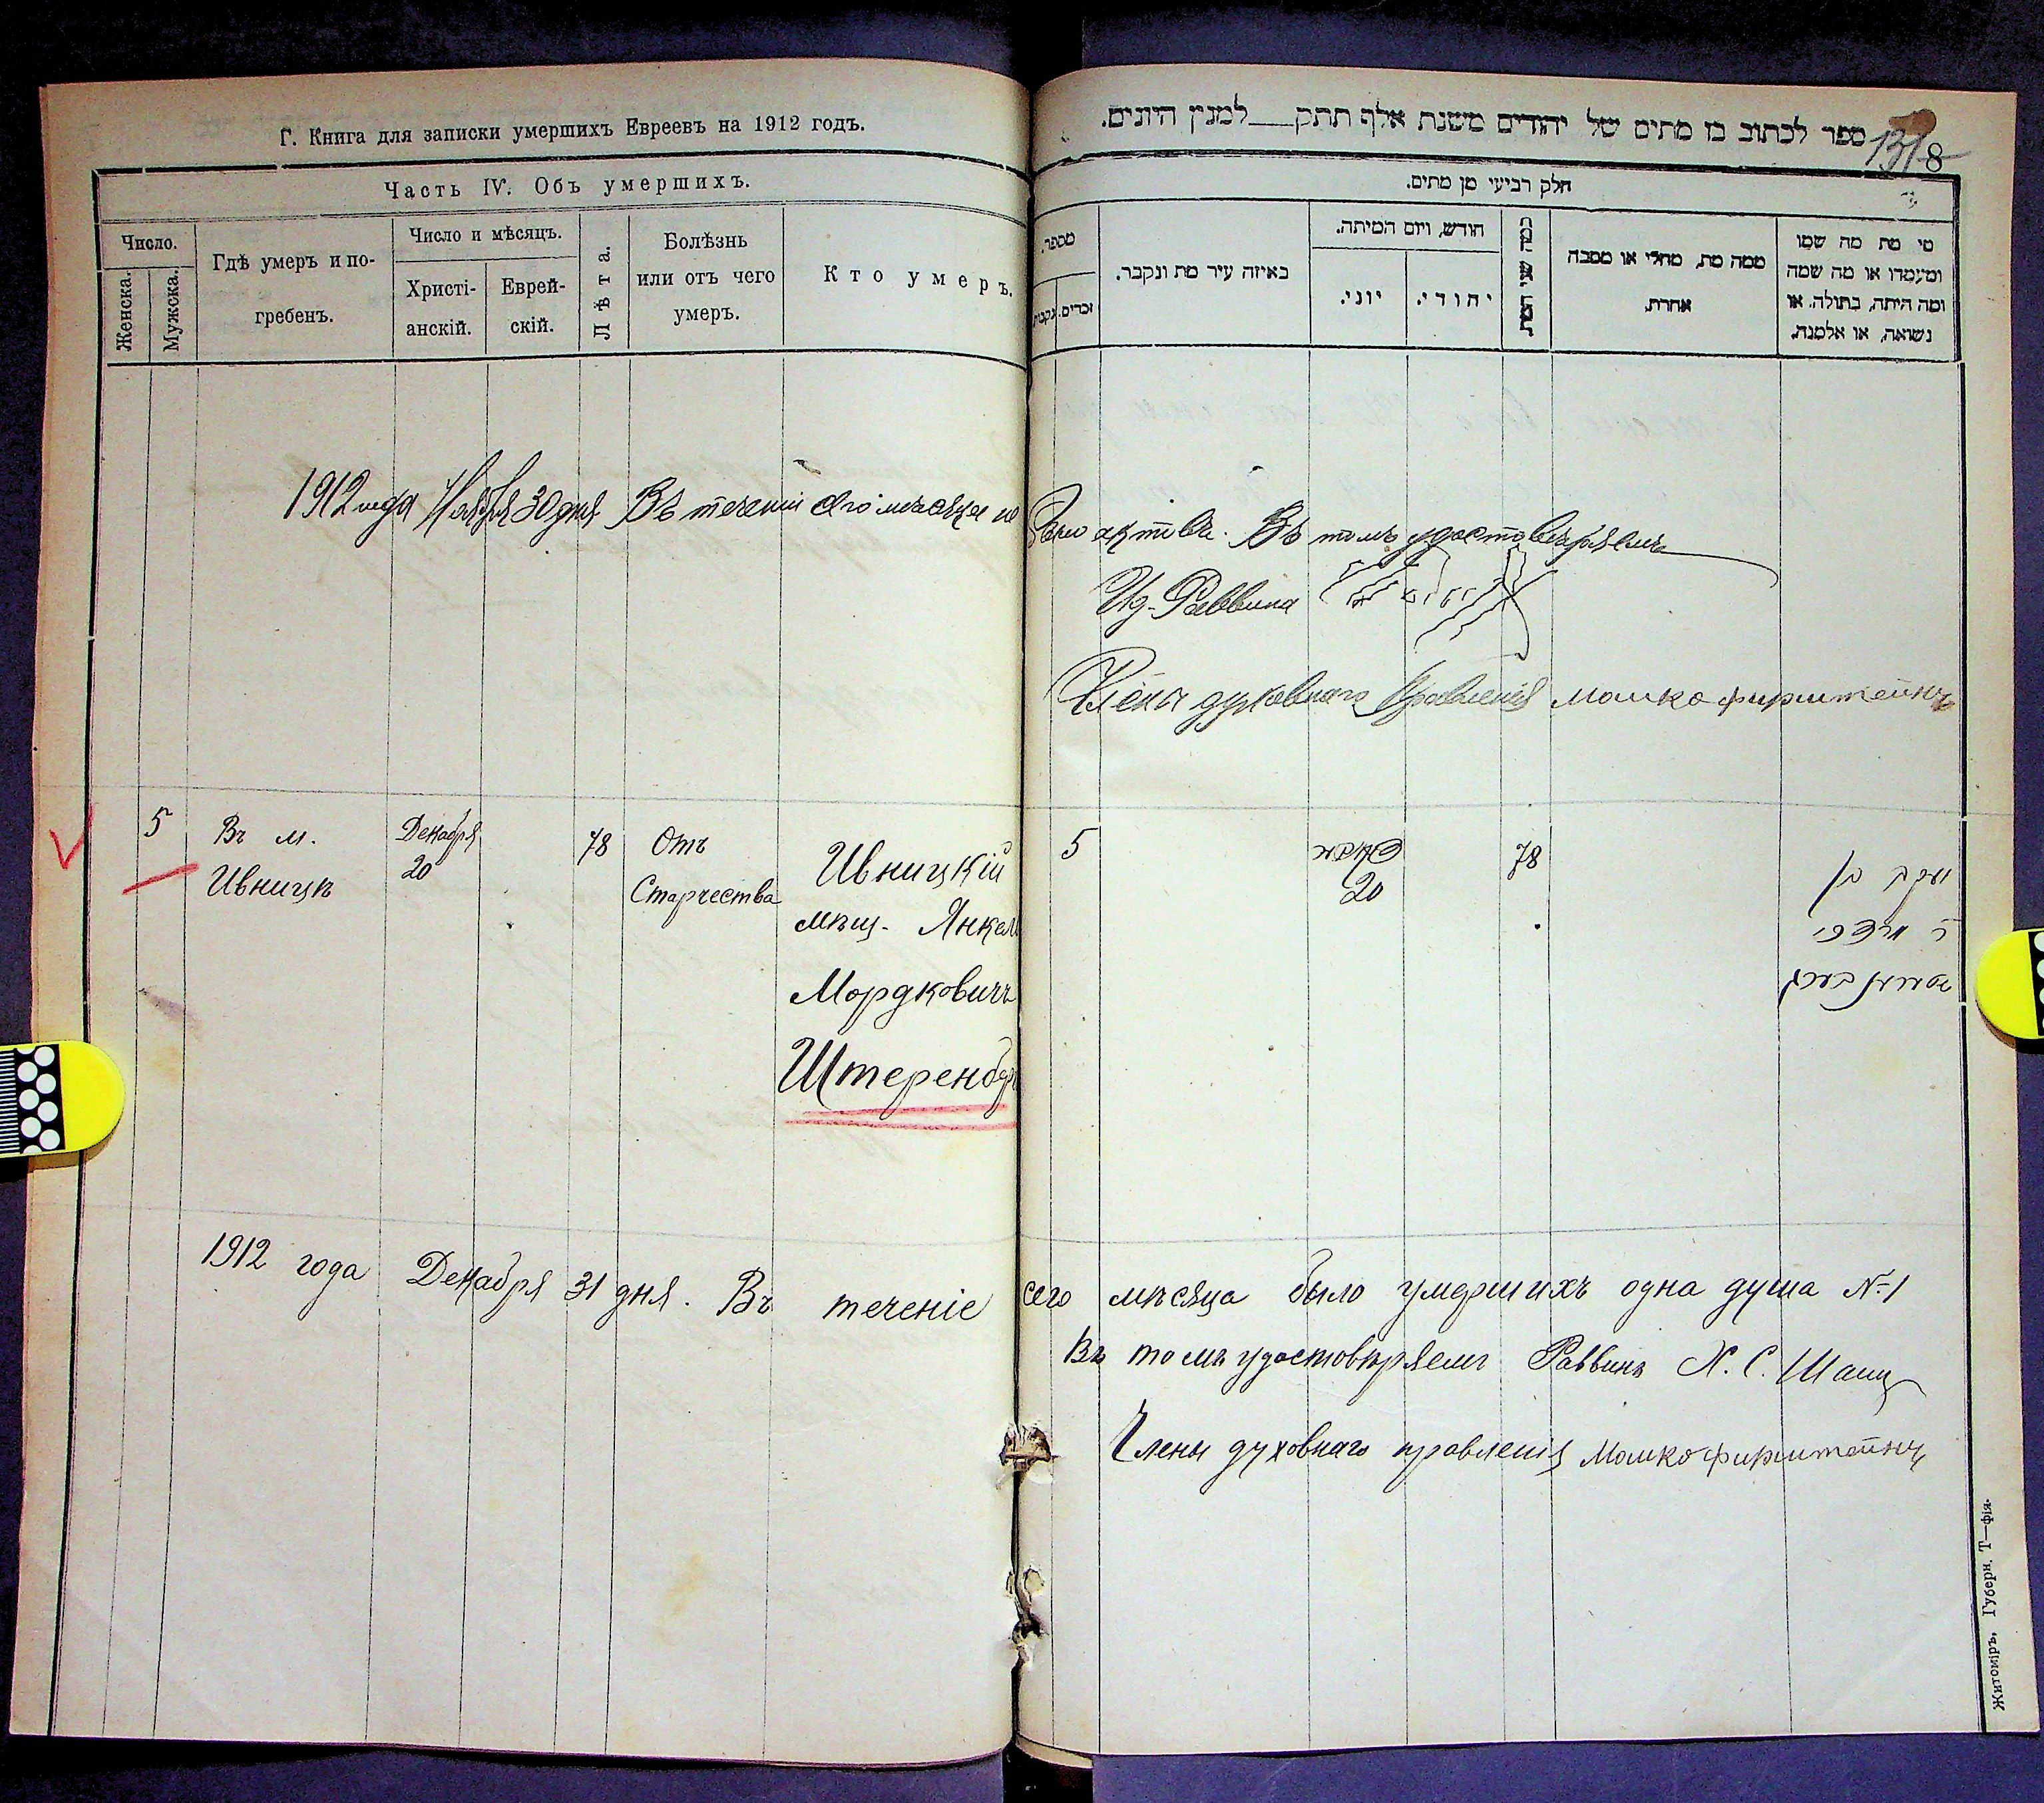 Г. Книга для записки умершихъ Евреевъ на 1912 годъ.
Часть IV. Объ умершихъ.
Число.
Женска.
Мужска.
Гдѣ умеръ и по-
гребенъ.
Число и мѣсяцъ.
Христі-
анскій.
Еврей-
скій.
Лѣта.
Болѣзнь
или отъ чего
умеръ.
Кто умеръ.
1912 года Ноября 30 дня Въ теченіи сего мѣсяца не
5
Въ м.
Ивницѣ
Декабря
20
78
Отъ
Старчества
Ивницкій
мѣщ. Янкел
Мордковичъ
Штеренбер
1912 года Декабря 31 дня. Въ теченіе
ספר לכתוב בו מתים של יהודים משנת אלף תתק__למנין היונים.
131
8
חלק רביעי מן מתים.
מספר.
זכרים.
נקבות.
באיזה עיר מת ונקבר.
חודש, ויום המיתה.
יוני.
יהודי.
כמה שני המת.
ממה מת, מחלי או מסבה
אחרת.
מי מת מה שמו
ומעמדו או מה שמה
ומה היתה, בתולה. או
נשואה, או אלמנה.
актовъ. Въ томъ удостовѣряемъ
Из. Раввина
Члены духовнаго Правленія Мошко Фирштейнъ
5
20
78
יעקב בן
ר מרדכי
שטערענבערג
сего мѣсяца было умершихъ одна душа №1
Въ томъ удостовѣряемъ Раввинъ Х. С. Шац
Члены духовнаго правленія Мошко Фирштейнъ
Житоміръ, Губерн. Т—фія.